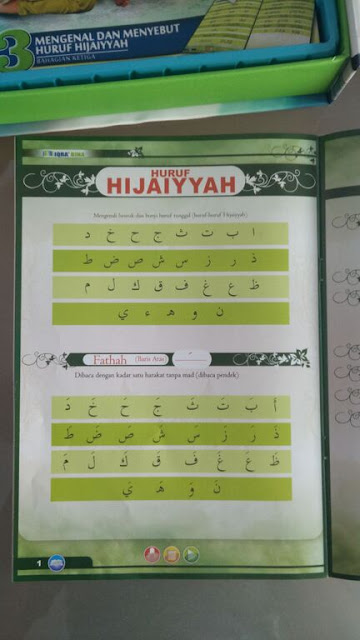 3 MENGENAL DAN MENYEBUT
HURUF HIJAIYYAH
BAHAGIAN KETIGA
IQRA'
HURUF
HIJAIYYAH
Mengenali bentuk dan bunyi huruf tunggal (huruf-huruf Hijaiyyah)
ا ب ت ث ج ح خ د
ذ ر ز س ش ص ض ط
ظ ع غ ف ق ك ل م
ن و ه ء ي
Fathah (Baris Atas)
Dibaca dengan kadar satu harakat tanpa mad (dibaca pendek)
أَ بَ تَ ثَ جَ حَ خَ دَ
ذَ رَ زَ سَ شَ صَ ضَ طَ
ظَ عَ غَ فَ قَ كَ لَ مَ
نَ وَ هَ يَ
1